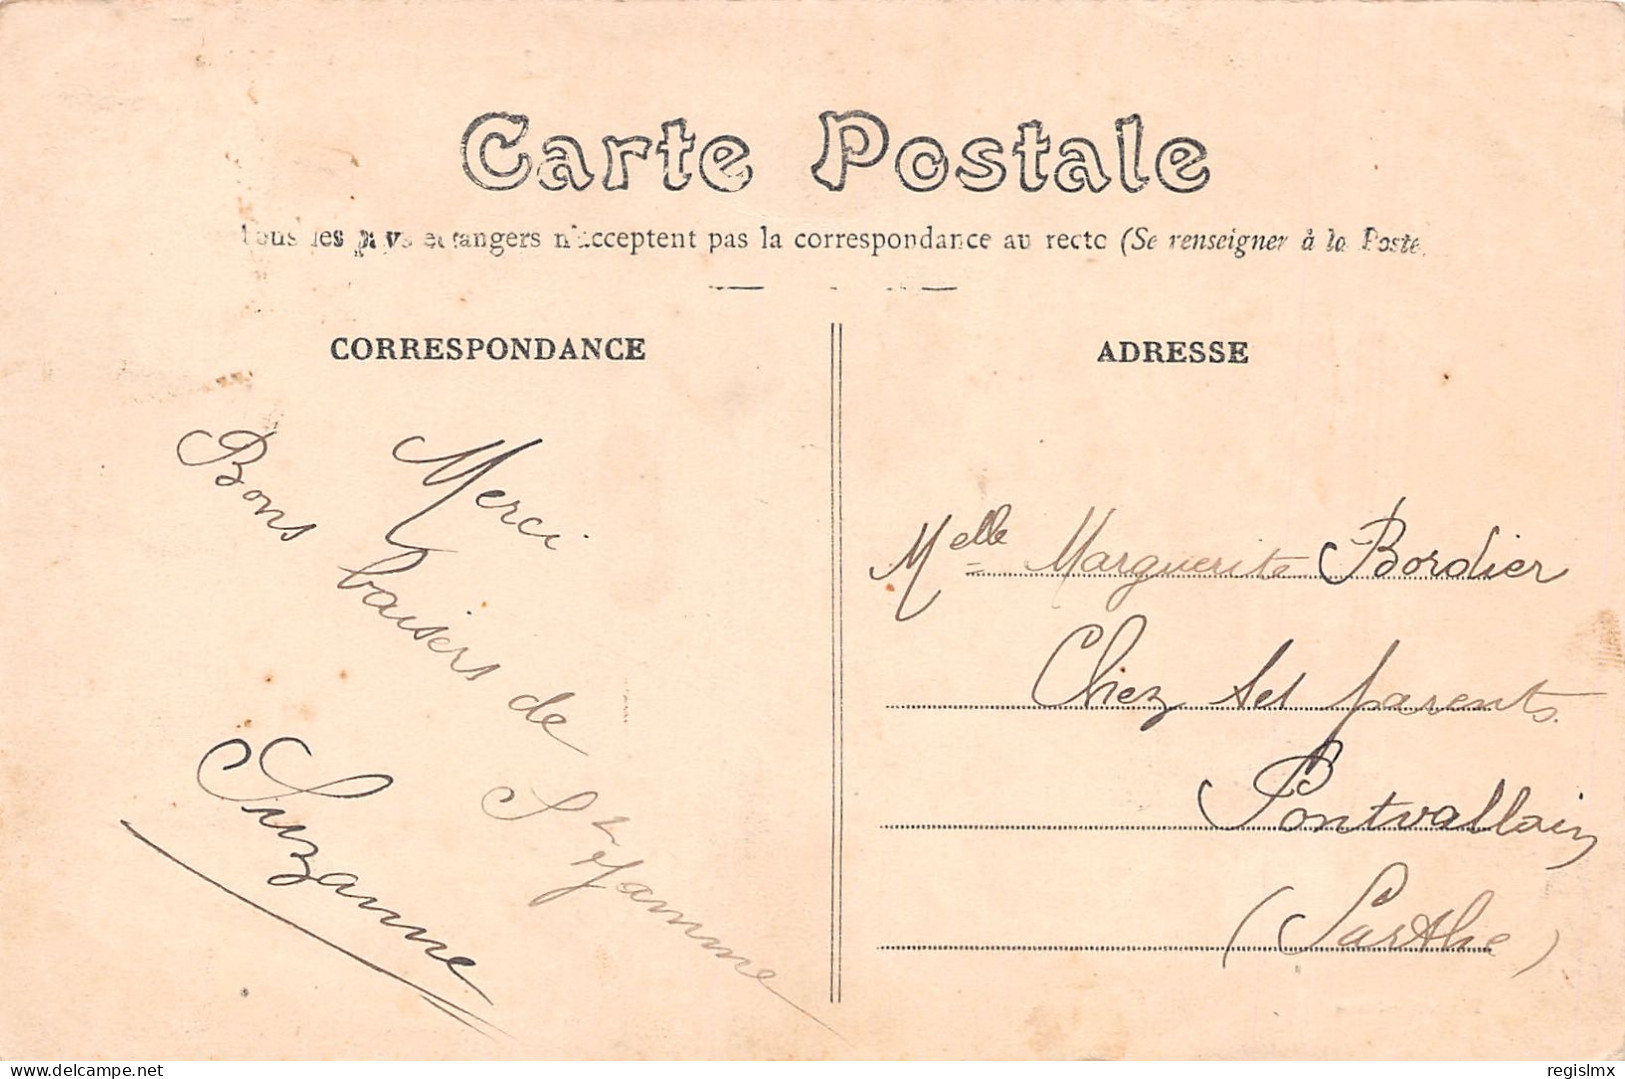 Carte Postale
Tous les pays étrangers n'acceptent pas la correspondance au recto (Se renseigner à la Poste)
CORRESPONDANCE
Merci
Bons baisers de
Suzanne
ADRESSE
Melle Marguerite Bordier
Chez ses parents
Pontvallain
(Sarthe)
delcampe.net
regislmx